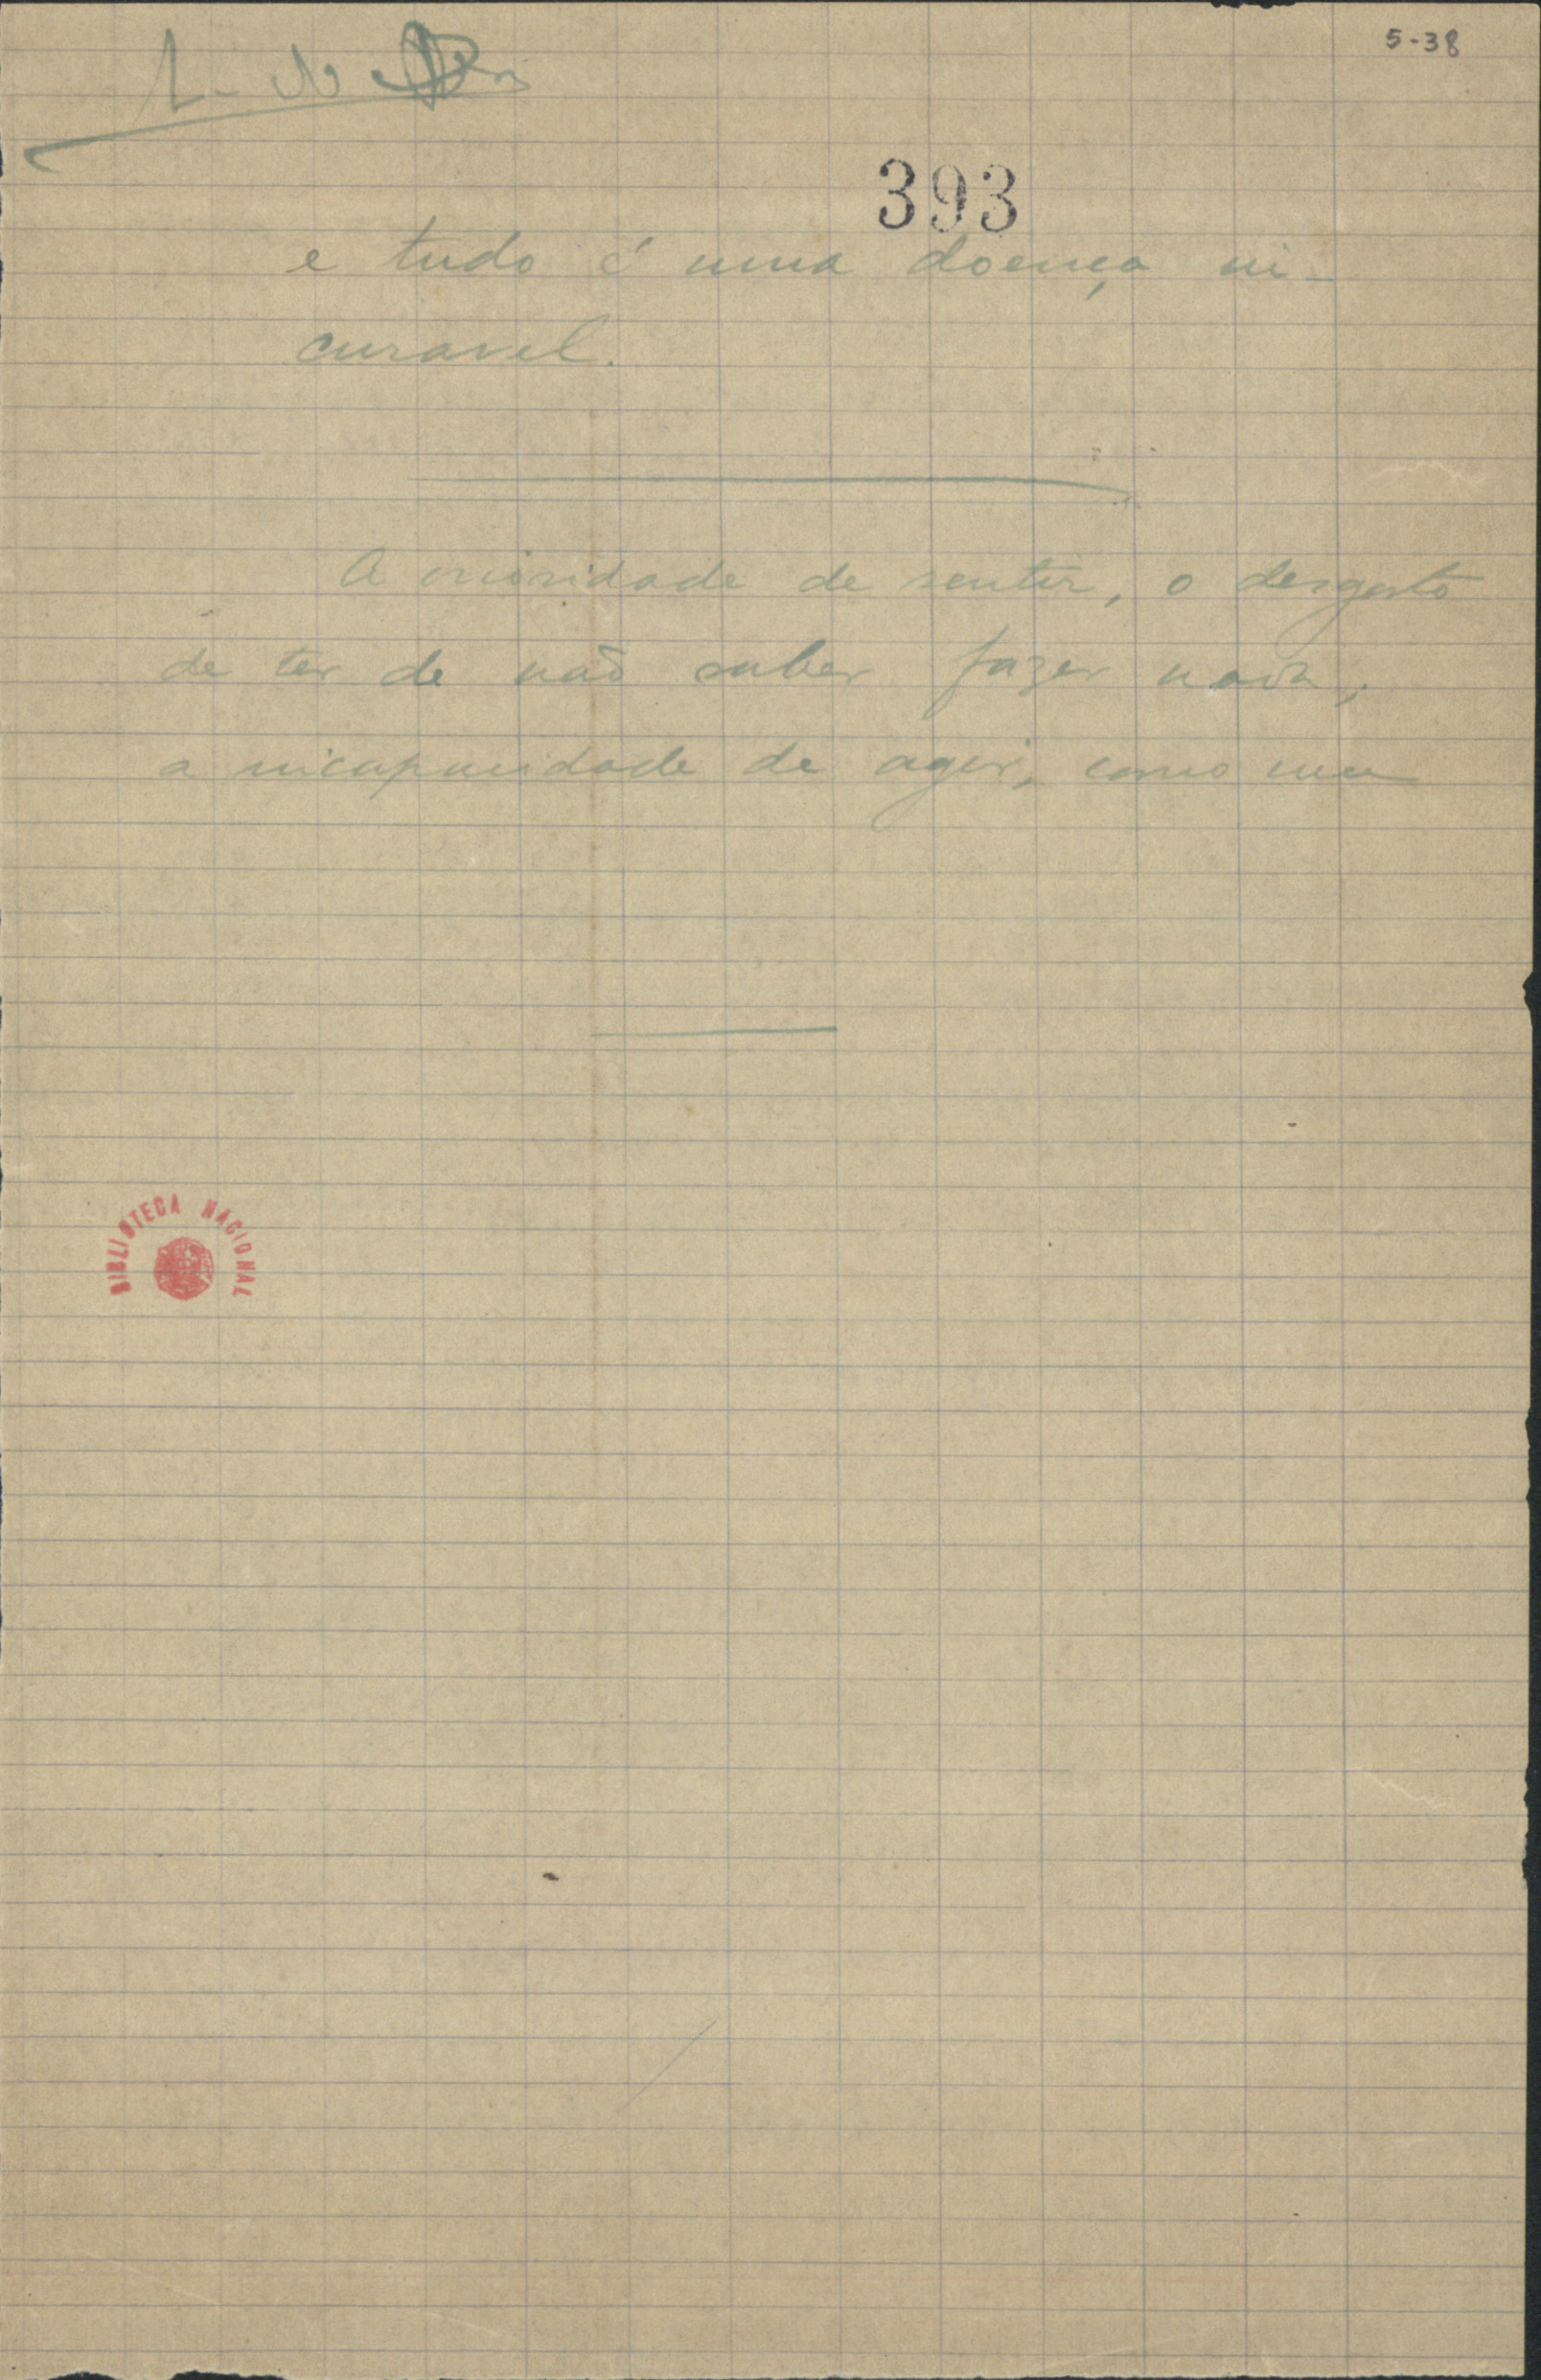 5-38
L. do D.
393
e tudo é uma doença in-
curavel.
A ociosidade de sentir, o desgosto
de ter de não saber fazer nada,
a incapacidade de agir, como uma
BIBLIOTECA NACIONAL